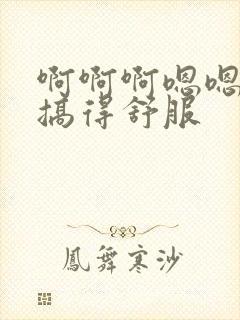 啊啊啊嗯嗯
搞得舒服
鳳舞寒沙